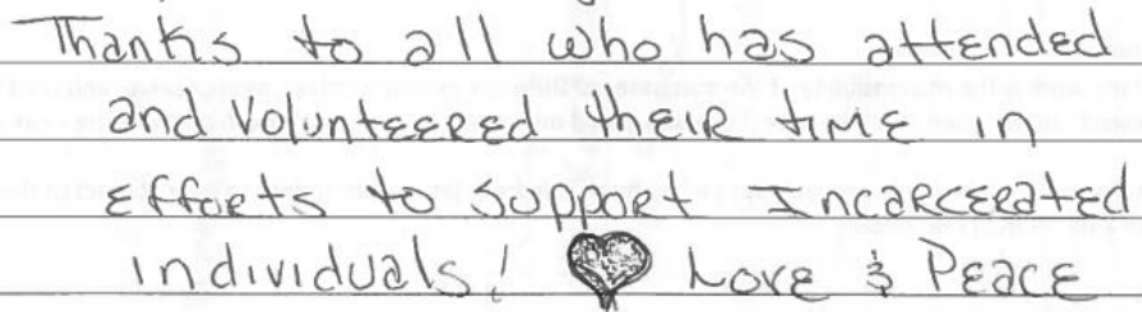 Thanks to all who has attended
and Volunteered their time in
efforts to support Incarcerated
individuals! Love & Peace